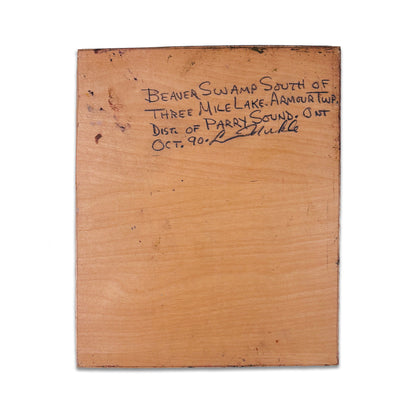 BEAVER SWAMP SOUTH OF
THREE MILE LAKE. ARMOUR TWP.
DIST. OF PARRY SOUND. ONT
OCT. 90.